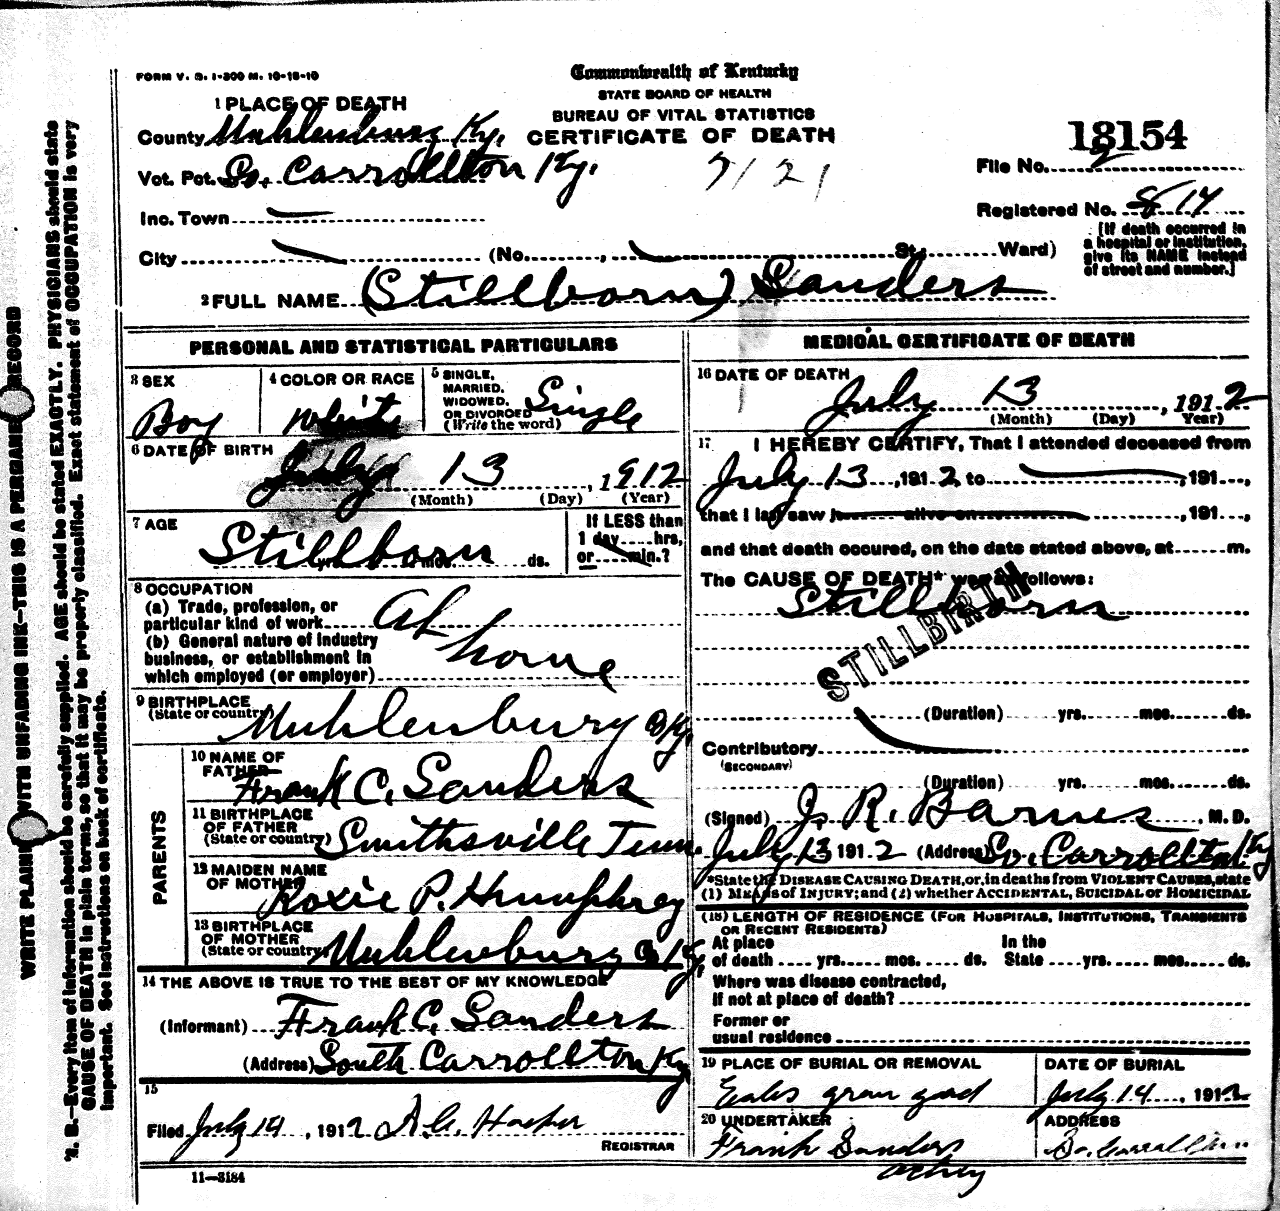 FORM V. S. 1-300 M. 10-18-10
Commonwealth of Kentucky
STATE BOARD OF HEALTH
BUREAU OF VITAL STATISTICS
CERTIFICATE OF DEATH
1 PLACE OF DEATH
County Muhlenburg Ky.
Vot. Pct. So. Carrollton Ky.
7121
13154
File No. 2
Inc. Town
Registered No. 14
City (No. , St; Ward)
[If death occurred in
a hospital or institution,
give its NAME instead
of street and number.]
2 FULL NAME (Stillborn) Sanders
PERSONAL AND STATISTICAL PARTICULARS
3 SEX
Boy
4 COLOR OR RACE
White
5 SINGLE,
MARRIED,
WIDOWED,
OR DIVORCED
(Write the word)
Single
6 DATE OF BIRTH
July 13, 1912
(Month) (Day) (Year)
7 AGE
Stillborn
yrs. mos. ds.
If LESS than
1 day hrs,
or min.?
8 OCCUPATION
(a) Trade, profession, or
particular kind of work At home
(b) General nature of industry
business, or establishment in
which employed (or employer)
9 BIRTHPLACE
(State or country) Muhlenburg Co Ky.
PARENTS
10 NAME OF
FATHER Frank C. Sanders
11 BIRTHPLACE
OF FATHER
(State or country) Smithsville Tenn.
12 MAIDEN NAME
OF MOTHER Roxie P. Humphrey
13 BIRTHPLACE
OF MOTHER
(State or country) Muhlenburg Co Ky.
14 THE ABOVE IS TRUE TO THE BEST OF MY KNOWLEDGE
(Informant) Frank C. Sanders
(Address) South Carrollton Ky
15
Filed July 14, 1912
REGISTRAR
11-3184
MEDICAL CERTIFICATE OF DEATH
16 DATE OF DEATH
July 13, 1912
(Month) (Day) Year)
17 I HEREBY CERTIFY, That I attended deceased from
July 13, 1912, to , 191 ,
that I last saw h alive on , 191 ,
and that death occured, on the date stated above, at m.
The CAUSE OF DEATH* was as follows:
Stillborn
STILLBIRTH
(Duration) yrs. mos. ds.
Contributory
(SECONDARY)
(Duration) yrs. mos. ds.
(Signed) J. R. Barnes, M. D.
July 13 1912 (Address) So. Carrollton Ky
*State the DISEASE CAUSING DEATH, or, in deaths from VIOLENT CAUSES, state
(1) MEANS of INJURY; and (2) whether ACCIDENTAL, SUICIDAL or HOMICIDAL
(18) LENGTH OF RESIDENCE (FOR HOSPITALS, INSTITUTIONS, TRANSIENTS
OR RECENT RESIDENTS)
At place In the
of death yrs. mos. ds. State yrs. mos. ds.
Where was disease contracted,
If not at place of death?
Former or
usual residence
19 PLACE OF BURIAL OR REMOVAL
Eades grave yard
DATE OF BURIAL
July 14, 1912
20 UNDERTAKER
Frank Sanders
acting
ADDRESS
So. Carrollton
WRITE PLAINLY WITH UNFADING INK—THIS IS A PERMANENT RECORD
N. B.—Every item of information should be carefully supplied. AGE should be stated EXACTLY. PHYSICIANS should state
CAUSE OF DEATH in plain terms, so that it may be properly classified. Exact statement of OCCUPATION is very
important. See instructions on back of certificate.